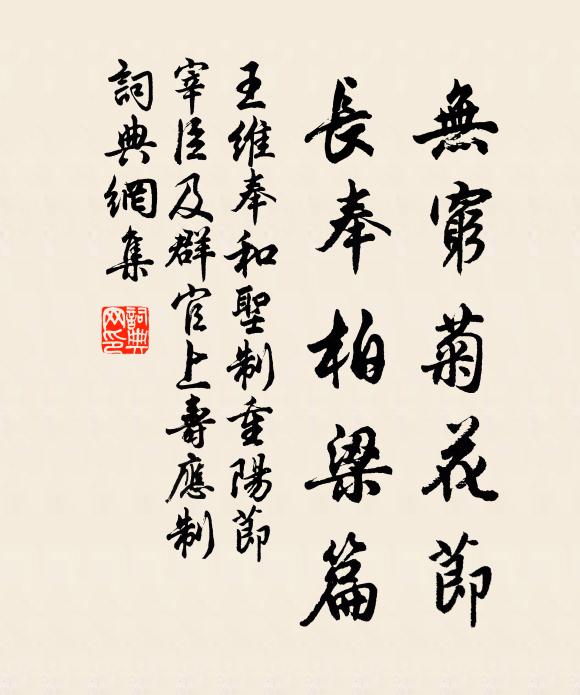 無窮菊花節
長奉柏梁篇
王維奉和聖制重陽節
宰臣及群官上壽應制
詞典網集
詞典网印